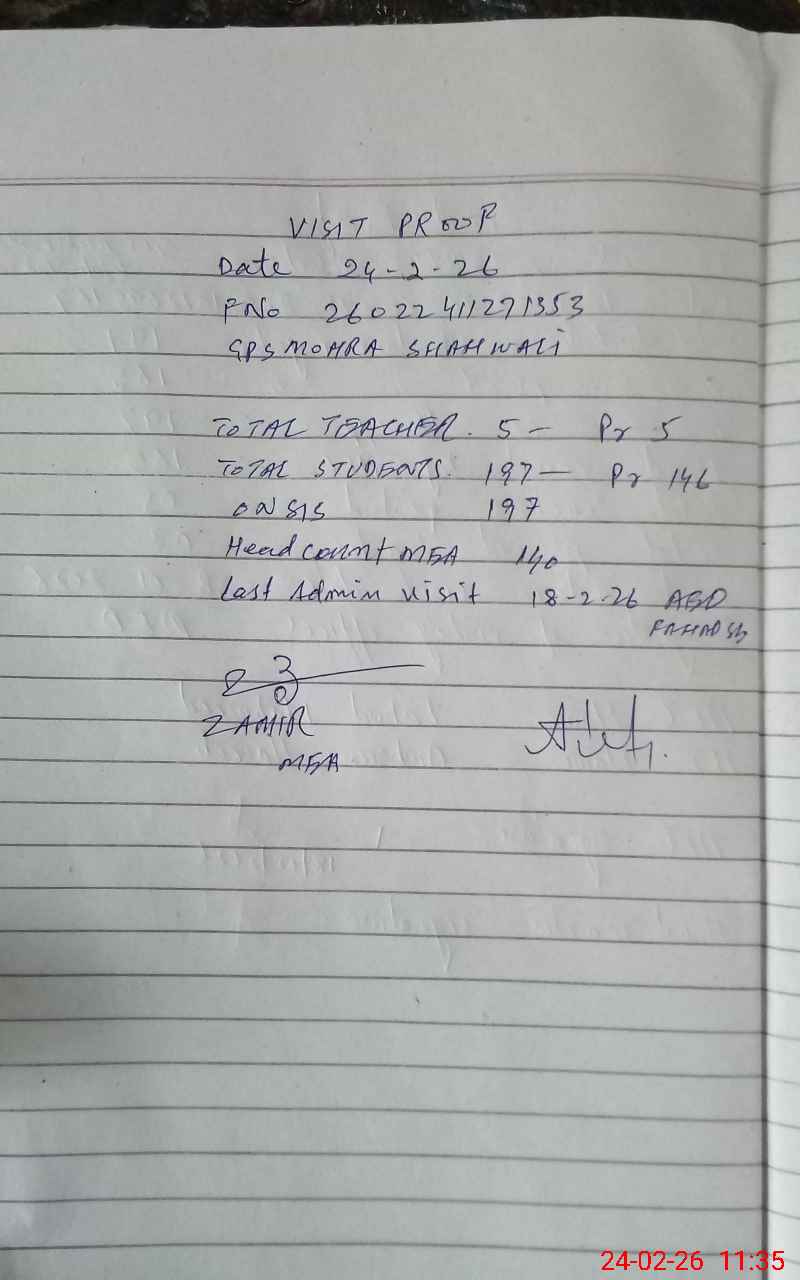 VISIT PROOF
Date 24-2-26
FNo 26022411271353
GPS MOHRA SHAHWALI
TOTAL TEACHER. 5 - Pr 5
TOTAL STUDENTS. 197 - Pr 146
ON SIS 197
Head count MEA 140
Last Admin visit 18-2-26 AEO
FAHAD Sb
ZAMIR
MEA
24-02-26 11:35